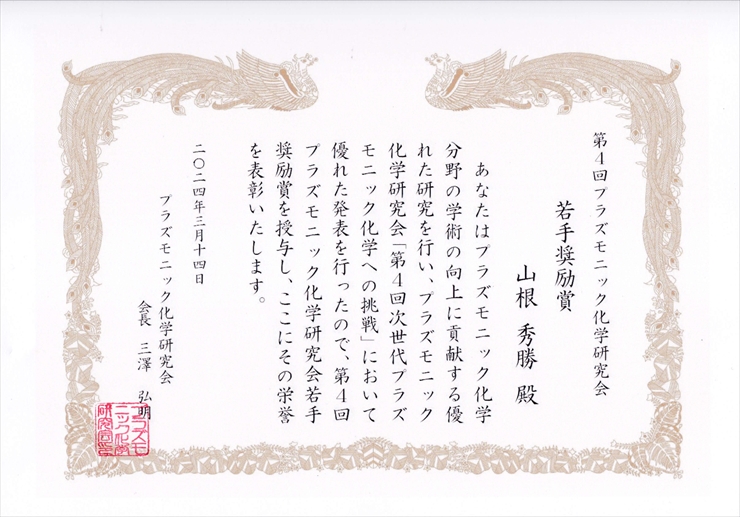 第4回プラズモニック化学研究会
若手奨励賞
山根 秀勝 殿
あなたはプラズモニック化学
分野の学術の向上に貢献する優
れた研究を行い、プラズモニック
化学研究会「第4回次世代プラズ
モニック化学への挑戦」において
優れた発表を行ったので、第4回
プラズモニック化学研究会若手
奨励賞を授与し、ここにその栄誉
を表彰いたします。
二〇二四年三月十四日
プラズモニック化学研究会
会長 三澤 弘明
プラズモ
ニック化学
研究会印